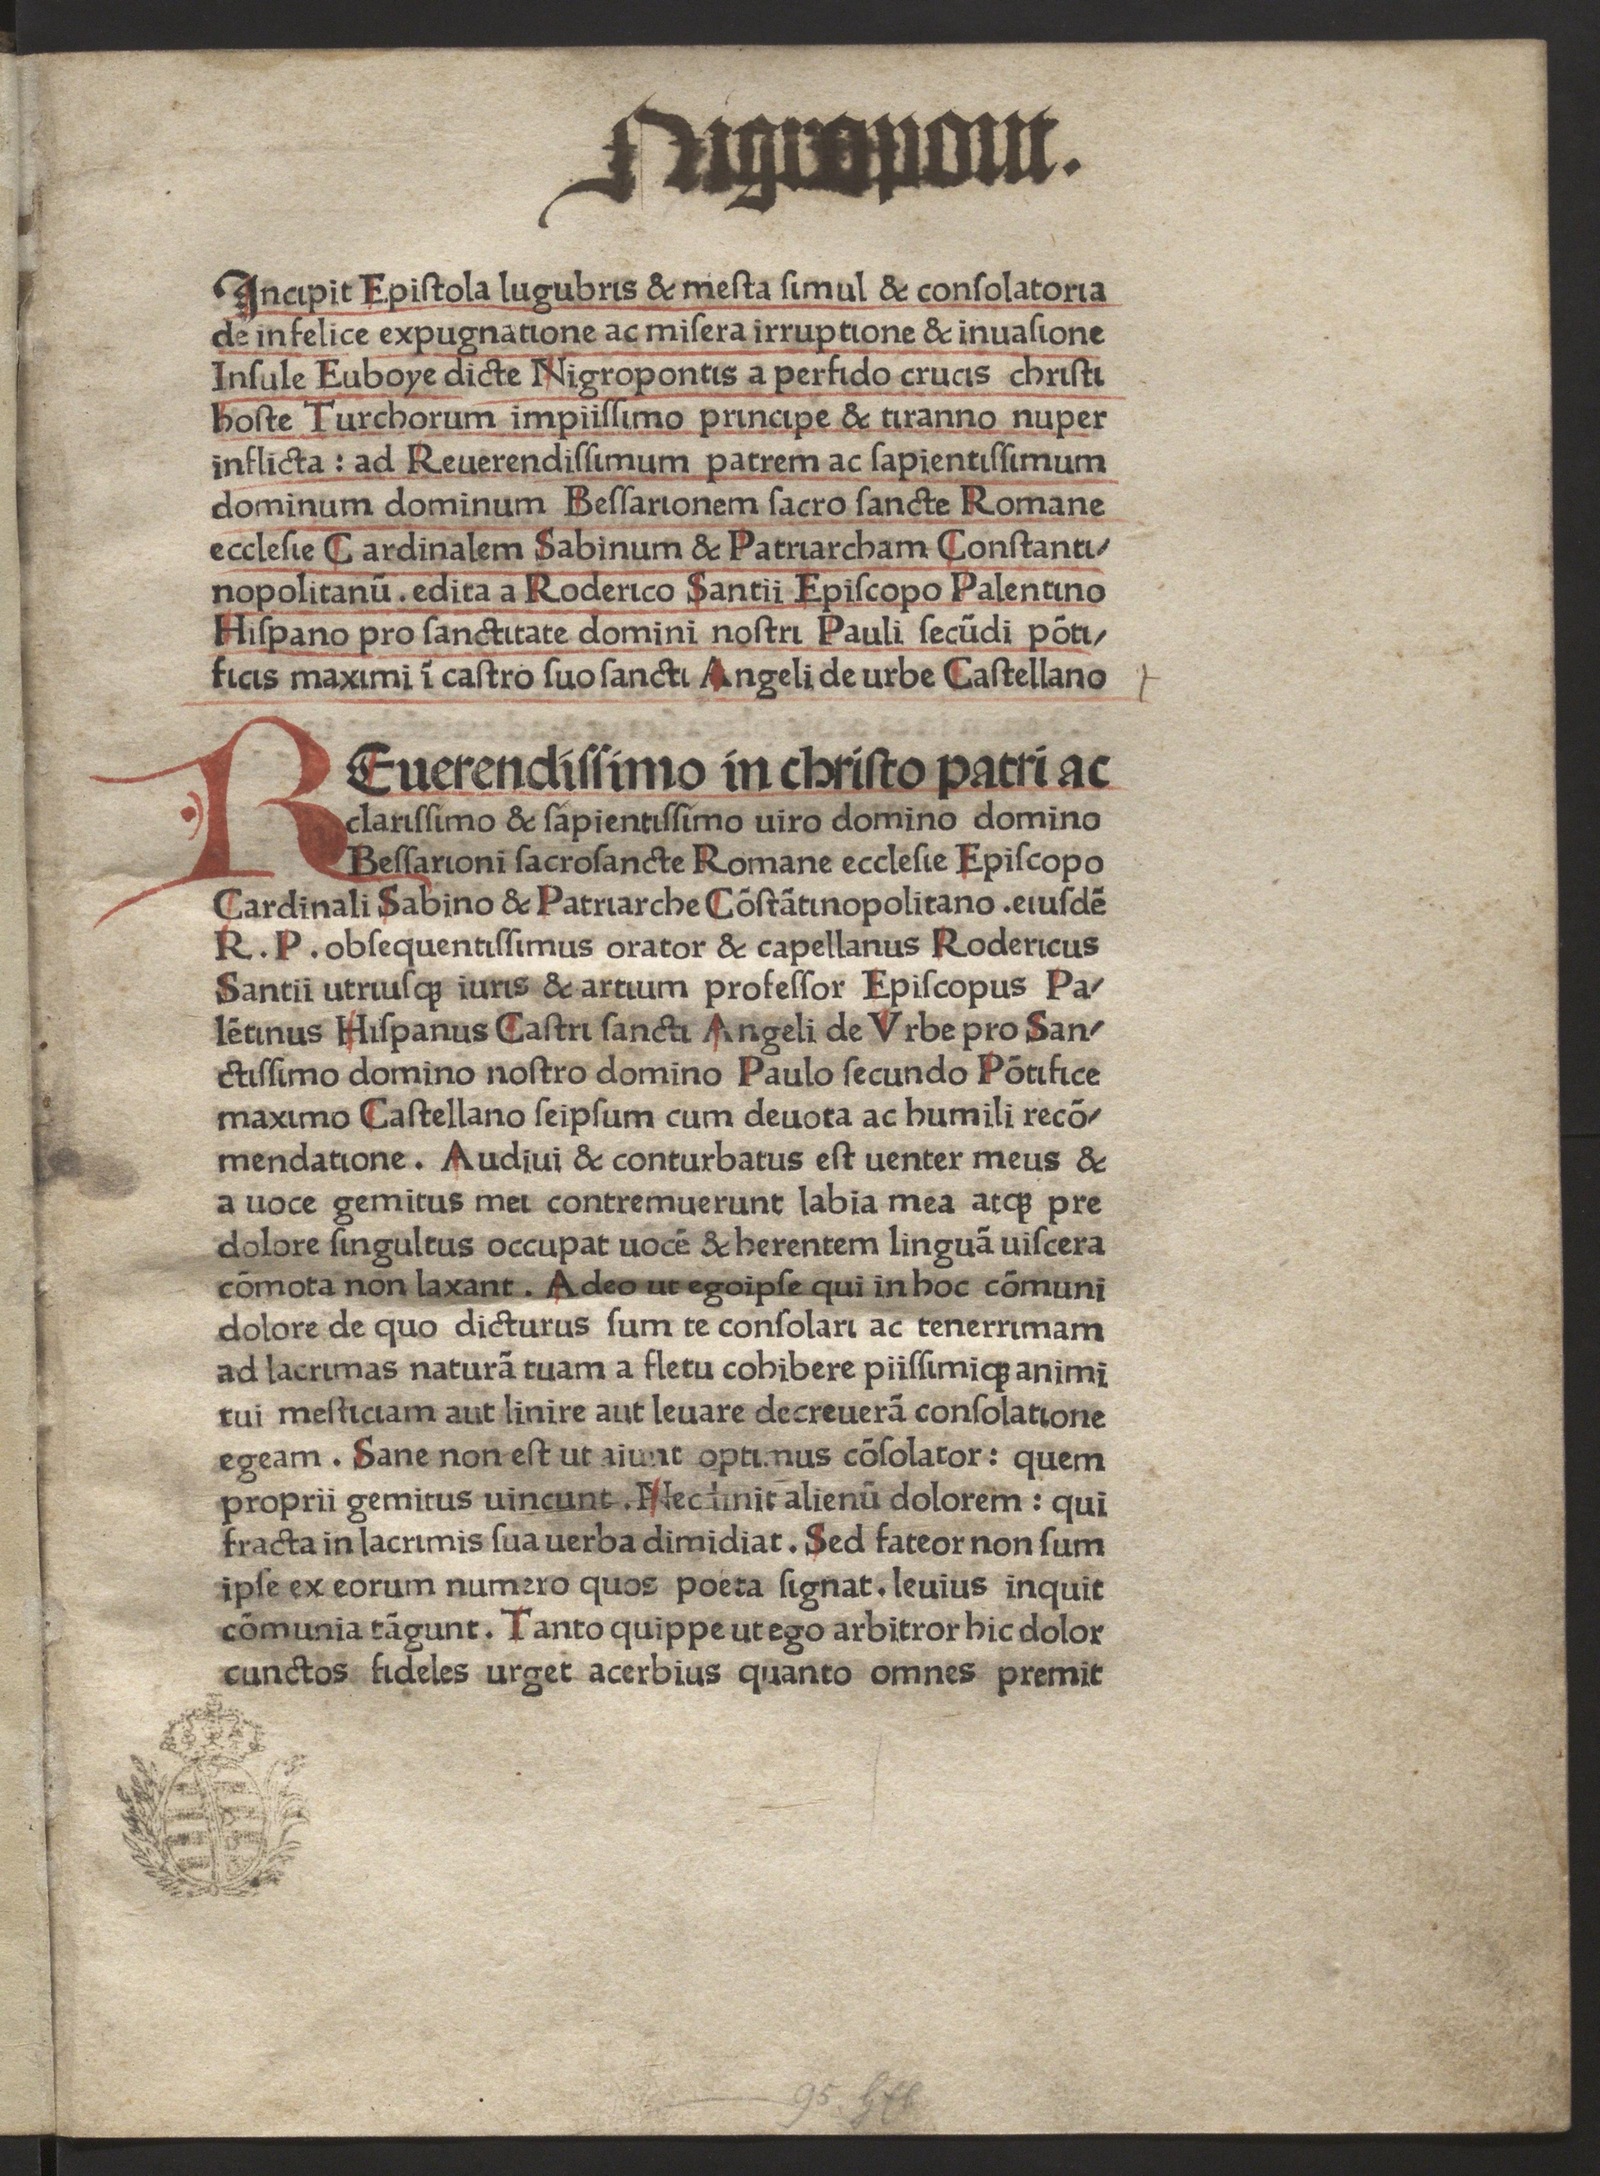 Nigropont.
Incipit Epistola lugubris & mesta simul & consolatoria
de infelice expugnatione ac misera irruptione & inuasione
Insule Euboye dicte Nigropontis a perfido crucis christi
hoste Turchorum impiissimo principe & tiranno nuper
inflicta : ad Reuerendissimum patrem ac sapientissimum
dominum dominum Bessarionem sacro sancte Romane
ecclesie C ardinalem Sabinum & Patriarcham Constanti/
nopolitanū . edita a Roderico Santii Episcopo Palentino
Hispano pro sanctitate domini nostri Pauli secūdi pōti/
ficis maximi ī castro suo sancti Angeli de urbe Castellano
REuerendissimo in christo patri ac
clarissimo & sapientissimo uiro domino domino
Bessarioni sacrosancte Romane ecclesie Episcopo
Cardinali Sabino & Patriarche Cōstātinopolitano . eiusdē
R . P . obsequentissimus orator & capellanus Rodericus
Santii utriusqꝫ iuris & artium professor Episcopus Pa/
lētinus Hispanus Castri sancti Angeli de Vrbe pro San/
ctissimo domino nostro domino Paulo secundo Pōtifice
maximo Castellano seipsum cum deuota ac humili recō/
mendatione . Audiui & conturbatus est uenter meus &
a uoce gemitus mei contremuerunt labia mea atqꝫ pre
dolore singultus occupat uocē & herentem linguā uiscera
cōmota non laxant . Adeo ut egoipse qui in hoc cōmuni
dolore de quo dicturus sum te consolari ac tenerrimam
ad lacrimas naturā tuam a fletu cohibere piissimiqꝫ animi
tui mesticiam aut linire aut leuare decreuerā consolatione
egeam . Sane non est ut aiunt optimus cōsolator : quem
proprii gemitus uincunt . Nec linit alienū dolorem : qui
fracta in lacrimis sua uerba dimidiat . Sed fateor non sum
ipse ex eorum numero quos poeta signat . leuius inquit
cōmunia tāgunt . Tanto quippe ut ego arbitror hic dolor
cunctos fideles urget acerbius quanto omnes premit
95